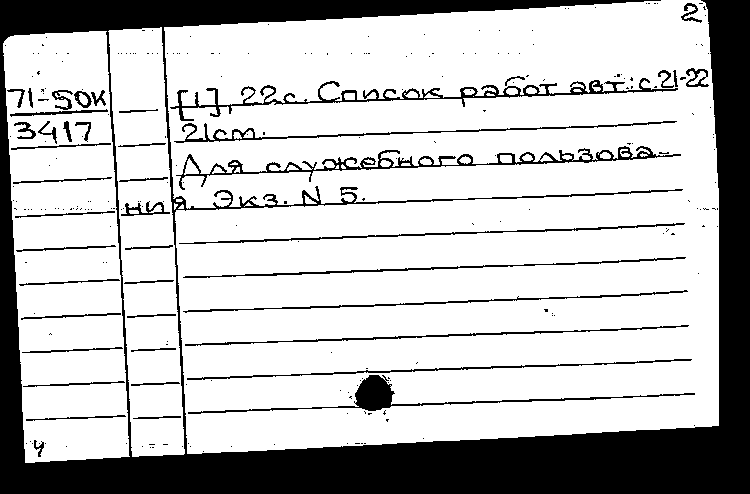 2
71-50К [1], 22с. Список работ авт.: с.21-22
3417 21см.
Для служебного пользова-
ния. Экз. N 5.
ч